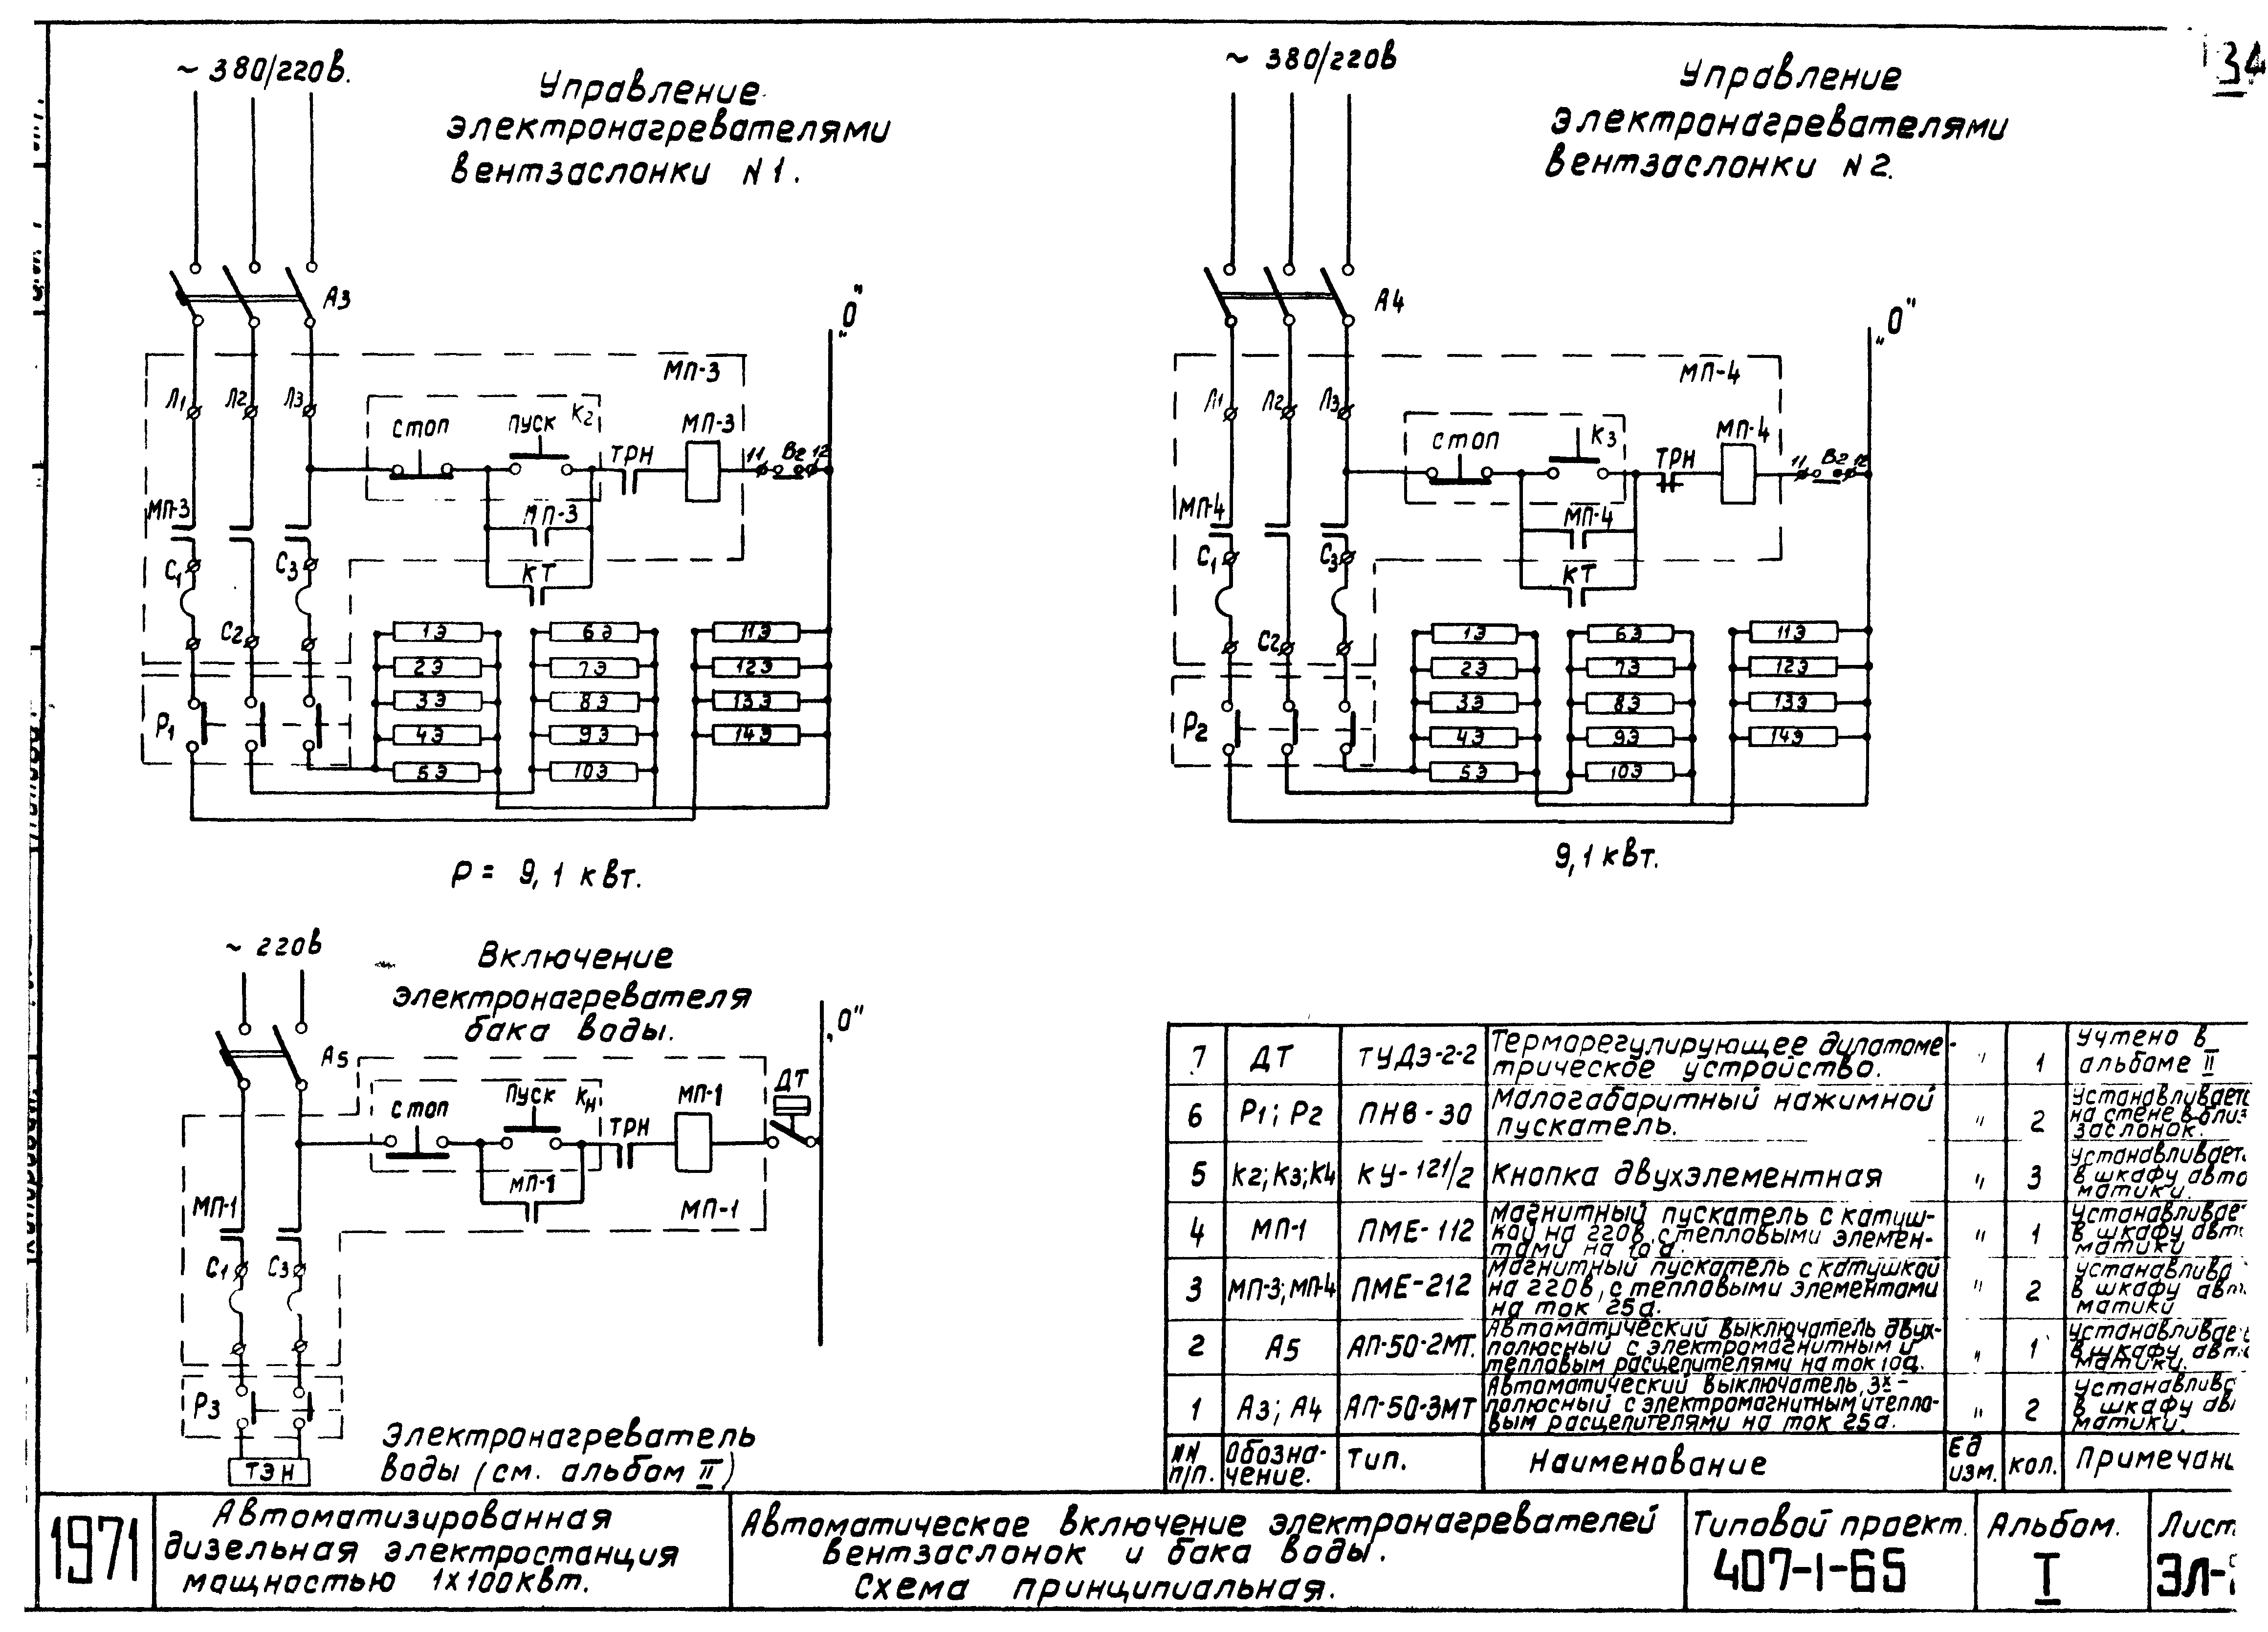 34
~ 380/220в.
Управление
электронагревателями
вентзаслонки N1.
А3
„0"
МП-3
Л1 Л2 Л3
стоп
пуск
К2
ТРН
МП-3
11 В2 12
МП-3
МП-3
КТ
С1
С3
С2
Р1
1Э
2Э
3Э
4Э
5Э
6Э
7Э
8Э
9Э
10Э
11Э
12Э
13Э
14Э
Р= 9,1 квт.
~ 380/220в
Управление
электронагревателями
вентзаслонки N2.
А4
„0"
МП-4
Л1 Л2 Л3
стоп
К3
ТРН
МП-4
11 В2 12
МП-4
МП-4
КТ
С1
С3
С2
Р2
1Э
2Э
3Э
4Э
5Э
6Э
7Э
8Э
9Э
10Э
11Э
12Э
13Э
14Э
9,1 квт.
~ 220в
Включение
электронагревателя
бака воды.
А5
„0"
стоп
пуск
Кн
ТРН
МП-1
ДТ
МП-1
МП-1
МП-1
С1
С3
Р3
ТЭН
Электронагреватель
воды (см. альбом II)
7 ДТ ТУДЭ-2-2 Терморегулирующее дилатоме-
трическое устройство. " 1 Учтено в
альбоме II
6 Р1; Р2 ПНВ-30 Малогабаритный нажимной
пускатель. " 2 Устанавливаетс
на стене вблиз
заслонок.
5 К2; К3; К4 КУ-121/2 Кнопка двухэлементная " 3 Устанавливает
в шкафу авто
матики.
4 МП-1 ПМЕ-112 Магнитный пускатель с катуш-
кой на 220в, с тепловыми элемен-
тами на 10а. " 1 Устанавливае
в шкафу авт
матики
3 МП-3; МП-4 ПМЕ-212 Магнитный пускатель с катушкой
на 220в, с тепловыми элементами
на ток 25а. " 2 Устанавлива
в шкафу авт
матики
2 А5 АП-50-2МТ. Автоматический выключатель двух-
полюсный с электромагнитным и
тепловым расцепителями на ток 10а. " 1 Устанавливае
в шкафу авто
матики.
1 А3; А4 АП-50-3МТ Автоматический выключатель, 3х-
полюсный с электромагнитным и тепло-
вым расцепителями на ток 25а. " 2 Устанавлива
в шкафу ав
матики.
NN
п/п. Обозна-
чение. Тип. Наименование Ед
изм. кол. Примечани
1971
Автоматизированная
дизельная электростанция
мощностью 1х100квт.
Автоматическое включение электронагревателей
вентзаслонок и бака воды.
Схема принципиальная.
Типовой проект.
407-1-65
Альбом.
I
Лист
ЭЛ-